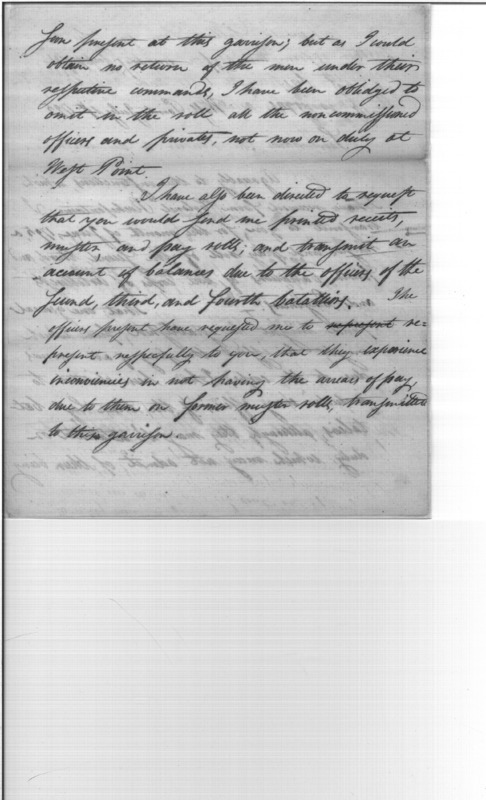 present at this garrison; but as I could
obtain no return of the men under their
respective commands, I have been obledged to
omit in the roll all the noncommissioned
officers and privates, not now on duty at
West Point.
I have also been directed to request
that you would send me printed receits,
muster, and pay rolls; and transmit an
account of balances due to the officers of the
second, third, and fourth batallions. The
officers present have requested me to represent re=
present, respecfully to you, that they experience
in not having the arrears of pay,
due to them on former muster rolls, transmitted
to this garrison.